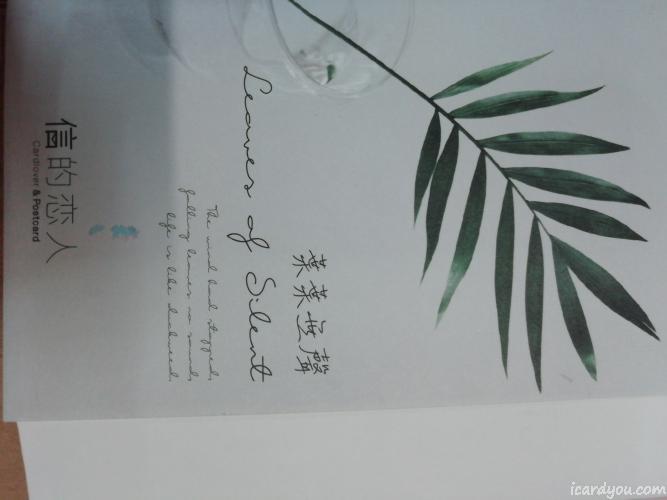 葉葉无聲
Leaves of Silent
The wind had stopped,
falling leaves no sound,
life is like duckweed.
信的恋人
Cardlover & Postcard
icardyou.com